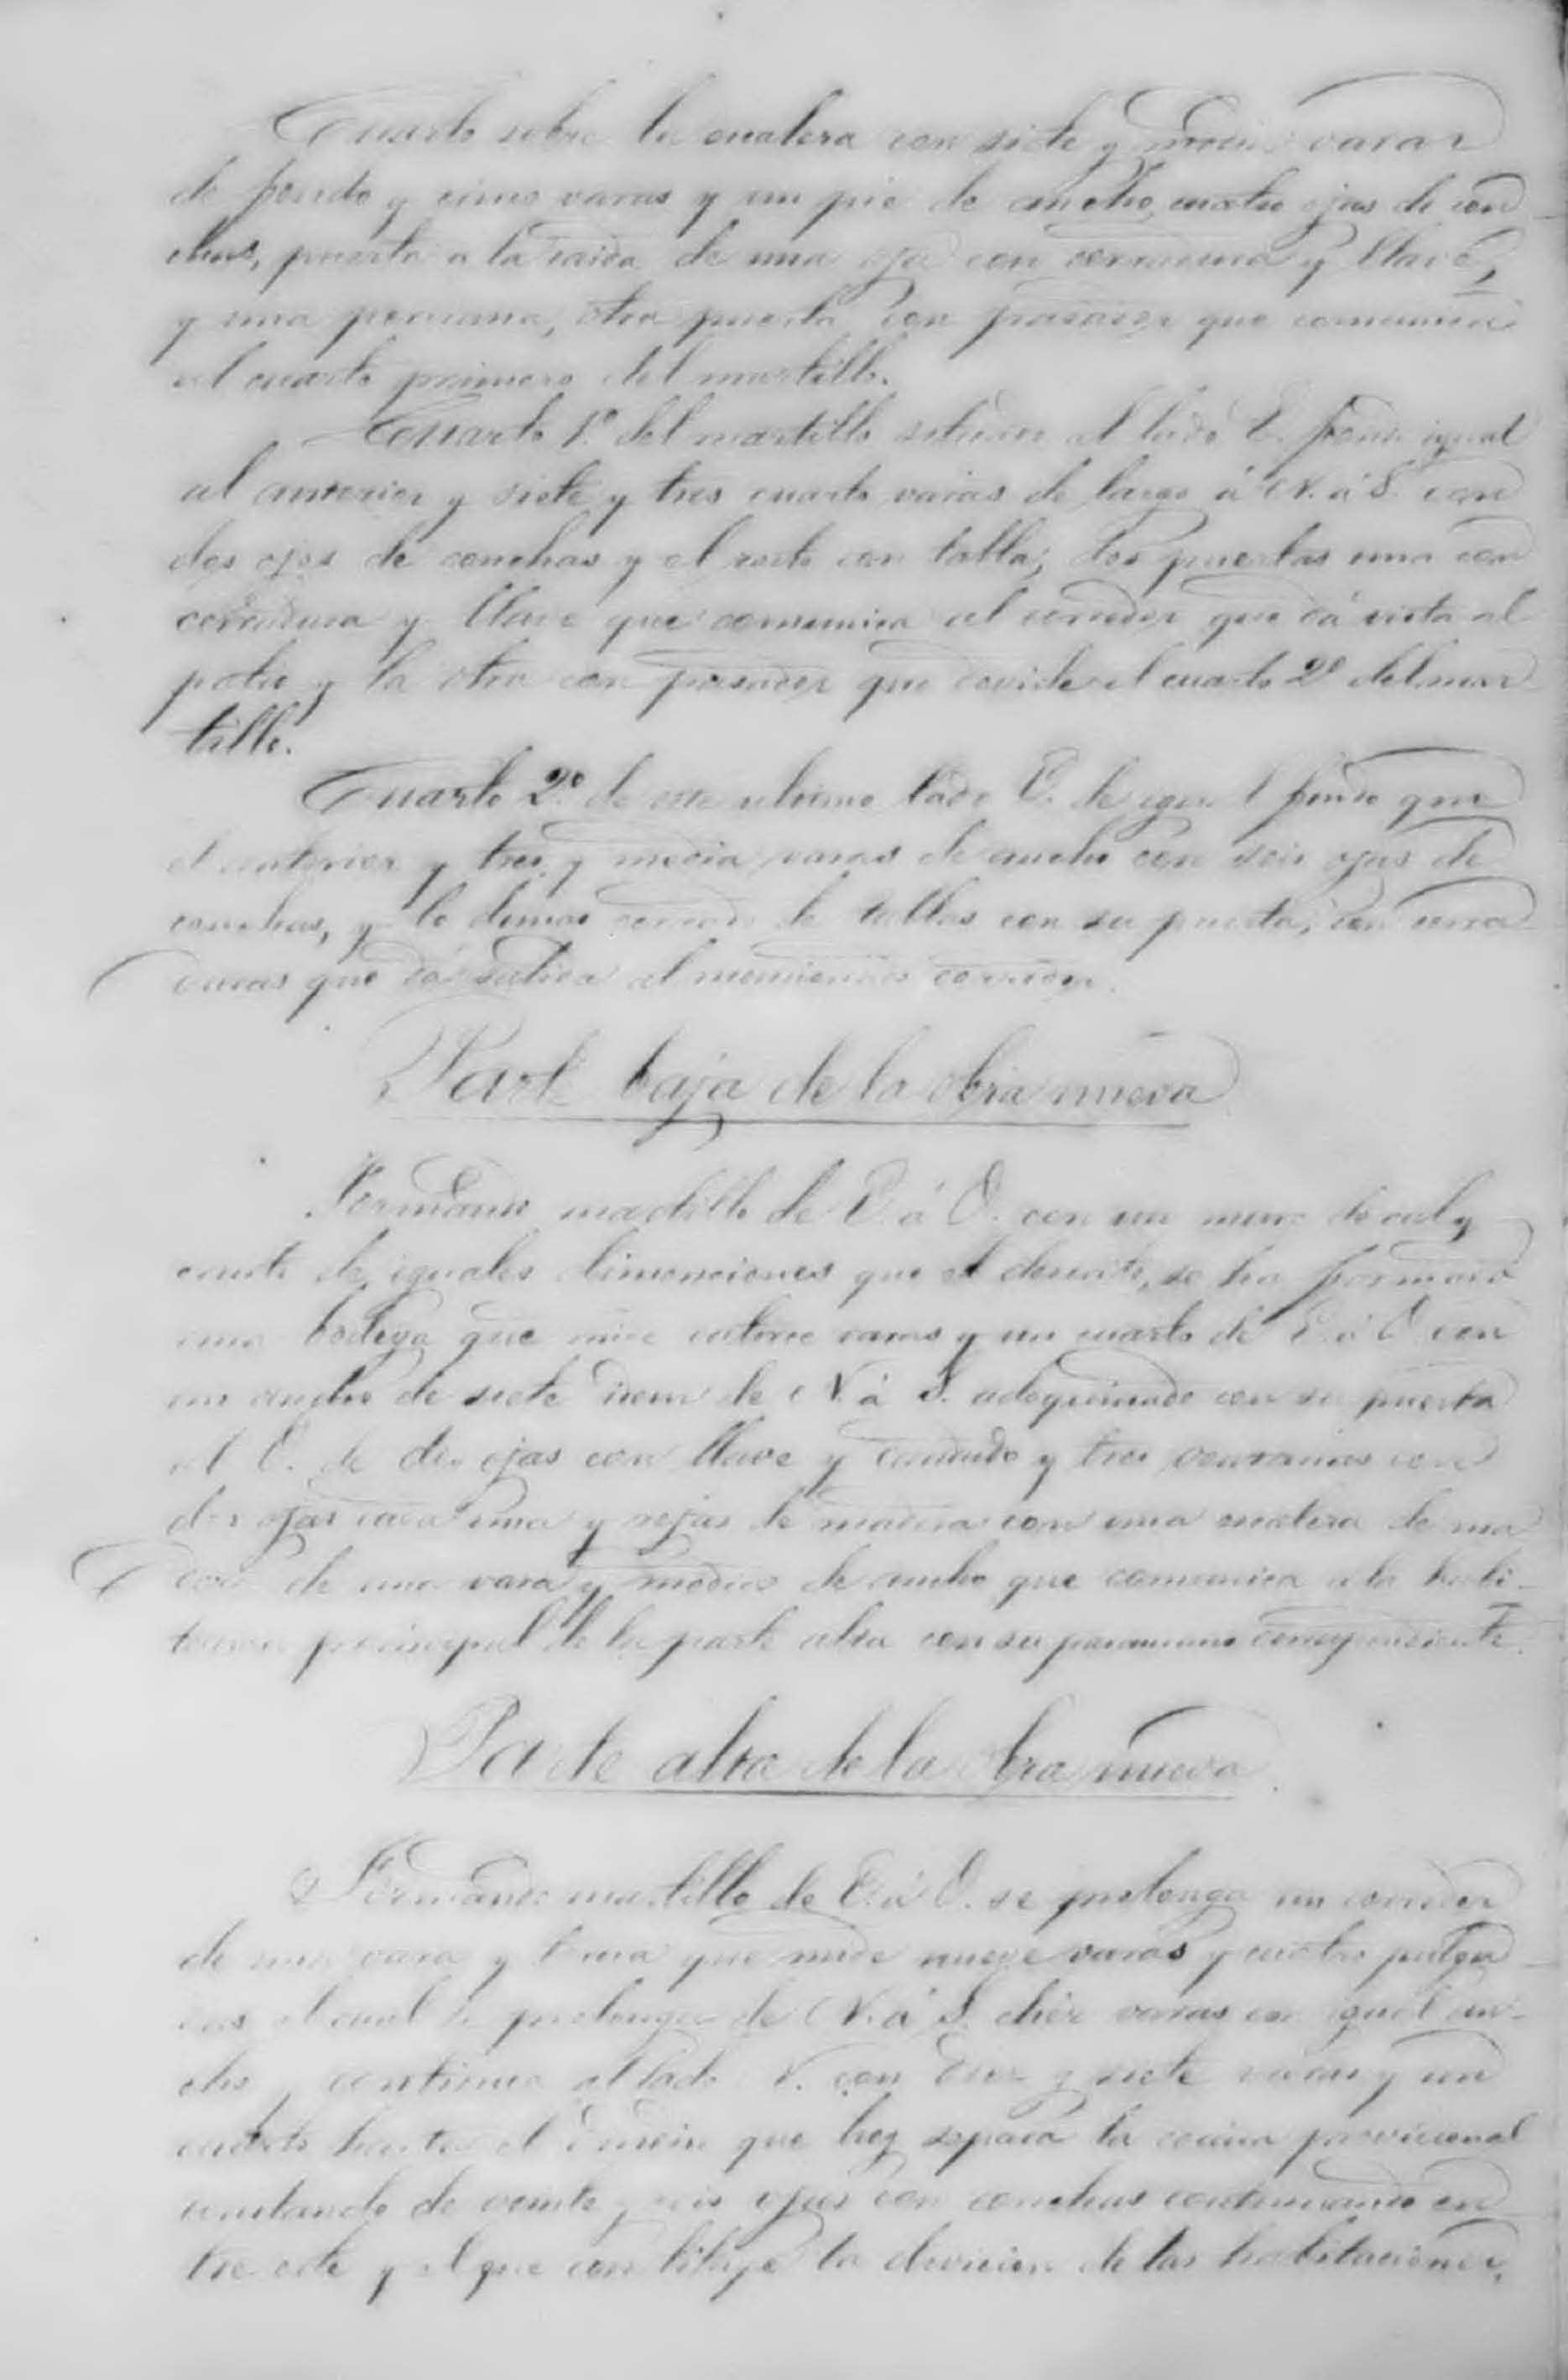 Cuarto sobre la escalera con siete y media varas
de fondo y cinco varas y un pie de ancho, cuatro ojas de con-
chas, puerta a la caida de una oja con cerradura y llave,
y una persiana, otra puerta con pasador que comunica
al cuarto primero del martillo.
Cuarto 1º del martillo situado al lado E. fondo igual
al anterior y siete y tres cuarto varas de largo á N. á S. con
dos ojas de conchas y el resto con tabla, dos puertas una con
cerradura y llave que comunica al corredor que dá vista al
patio y la otra con pasador que divide el cuarto 2º del mar-
tillo.
Cuarto 2º de este ultimo lado E. de igual fondo que
el anterior y tres y media varas de ancho con seis ojas de
conchas, y lo demas cerrado de tablas con su puerta, con cerra-
duras que dá salida al mencionado corredor.
Parte baja de la obra nueva
Formando martillo de E. á O. con un muro de cal y
canto de iguales dimenciones que el descrito, se ha formado
una bodega que mide catorce varas y un cuarto de E. á O. con
un ancho de siete idem de N. á S. adoquinado con su puerta
al O. de dos ojas con llave y candado y tres ventanas con
dos ojas cada una y rejas de madera con una escalera de ma-
dera de una vara y media de ancho que comunica a la habi-
tacion principal de la parte alta con su pasamano correspondiente.
Parte alta de la obra nueva
Formando martillo de E. á O. se prolonga un corredor
de una vara y tercia que mide nueve varas y cuatro pulga-
das el cual se prolonga de N. á S. diez varas en igual an-
cho y continua al lado N. con diez y siete varas y un
cuarto hasta el que hoy separa la cocina provicional
constando de veinte y seis ojas con conchas continuando en-
tre este y el que constituye la devicion de las habitaciones,